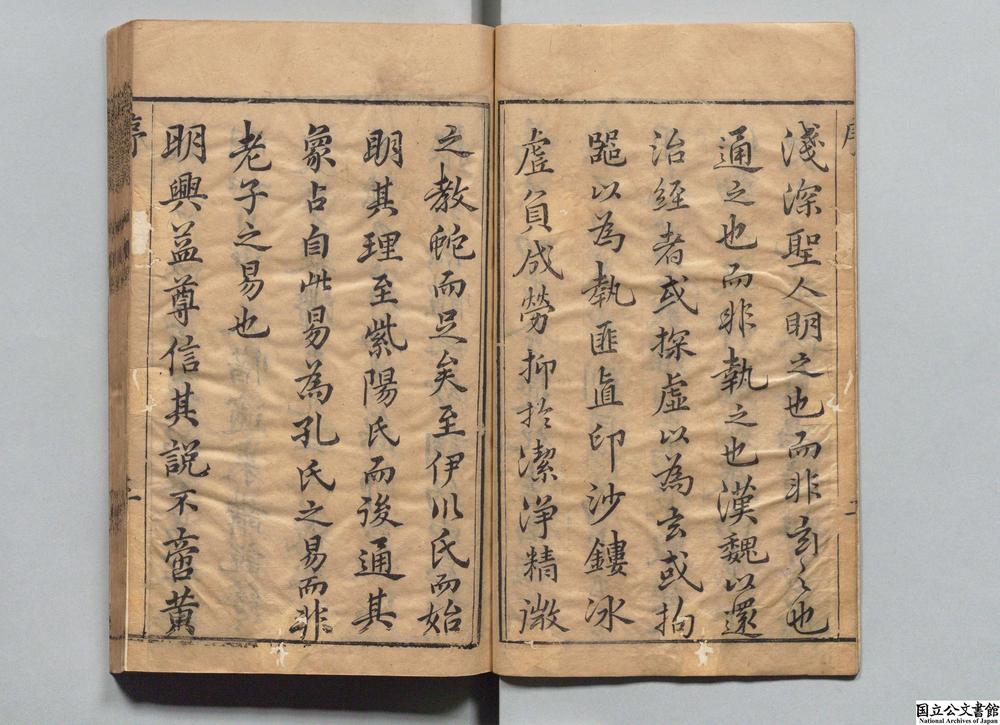 序
淺深聖人明之也而非玄之也
通之也而非執之也漢魏以還
治經者或探虛以為玄或拘
器以為執匪直印沙鏤冰
虛負成勞抑於潔淨精微
之教範而足矣至伊川氏而始
明其理至紫陽氏而後通其
象占自此易為孔氏之易而非
老子之易也
明興益尊信其說不啻黃
序
国立公文書館
National Archives of Japan